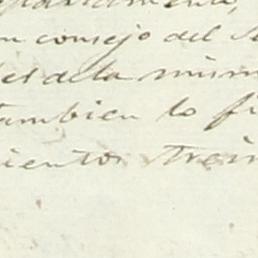 n consejo del
es de la mism
tambien lo f
ientos trein